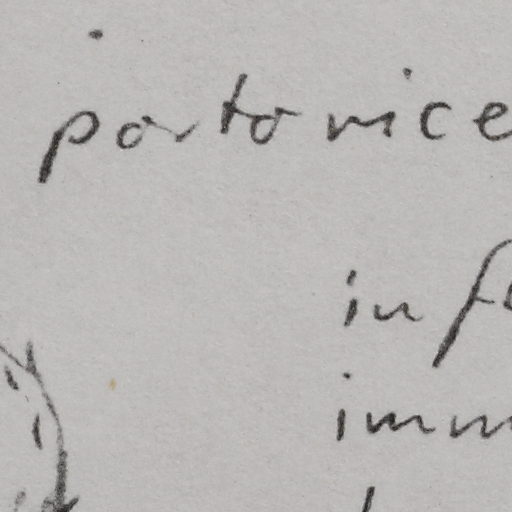 portorice
in f
imm